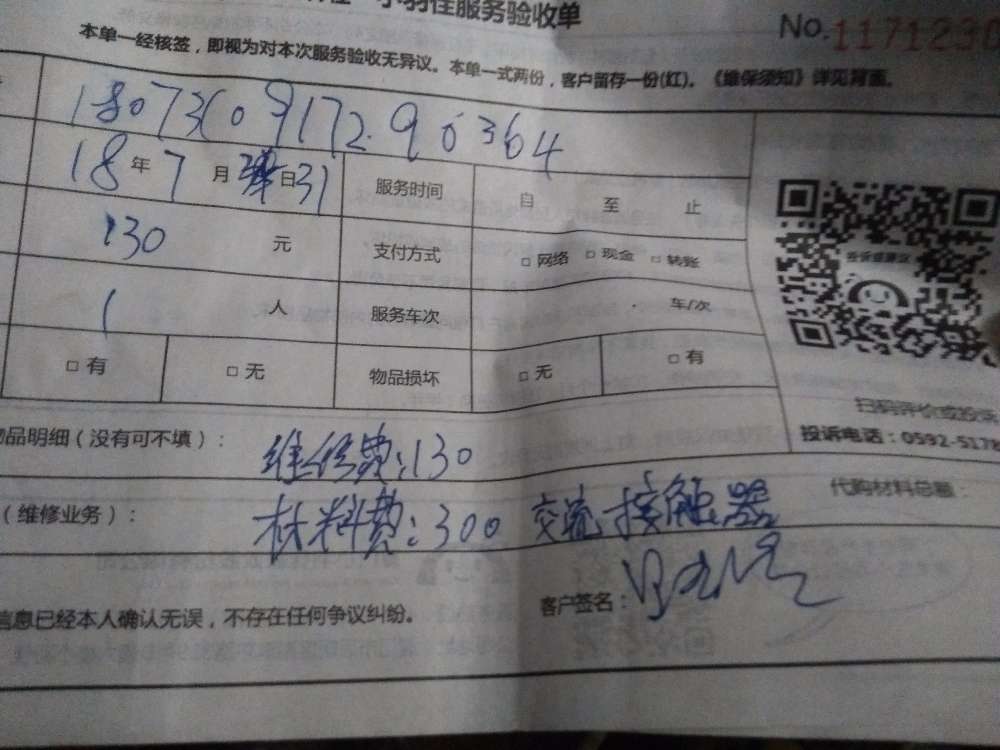 服务验收单
No.1171230
本单一经核签，即视为对本次服务验收无异议。本单一式两份，客户留存一份(红)。《维保须知》详见背面。
180731091729 0364
18年7月日31 服务时间 自 至 止
130 元 支付方式 □网络 □现金 □转账
1 人 服务车次 车/次
□有 □无 物品损坏 □无 □有
扫码评价或投诉
投诉电话：0592-5178
品明细（没有可不填）： 维修费：130
代购材料总额：
（维修业务）： 材料费：300 交流接触器
信息已经本人确认无误，不存在任何争议纠纷。 客户签名：